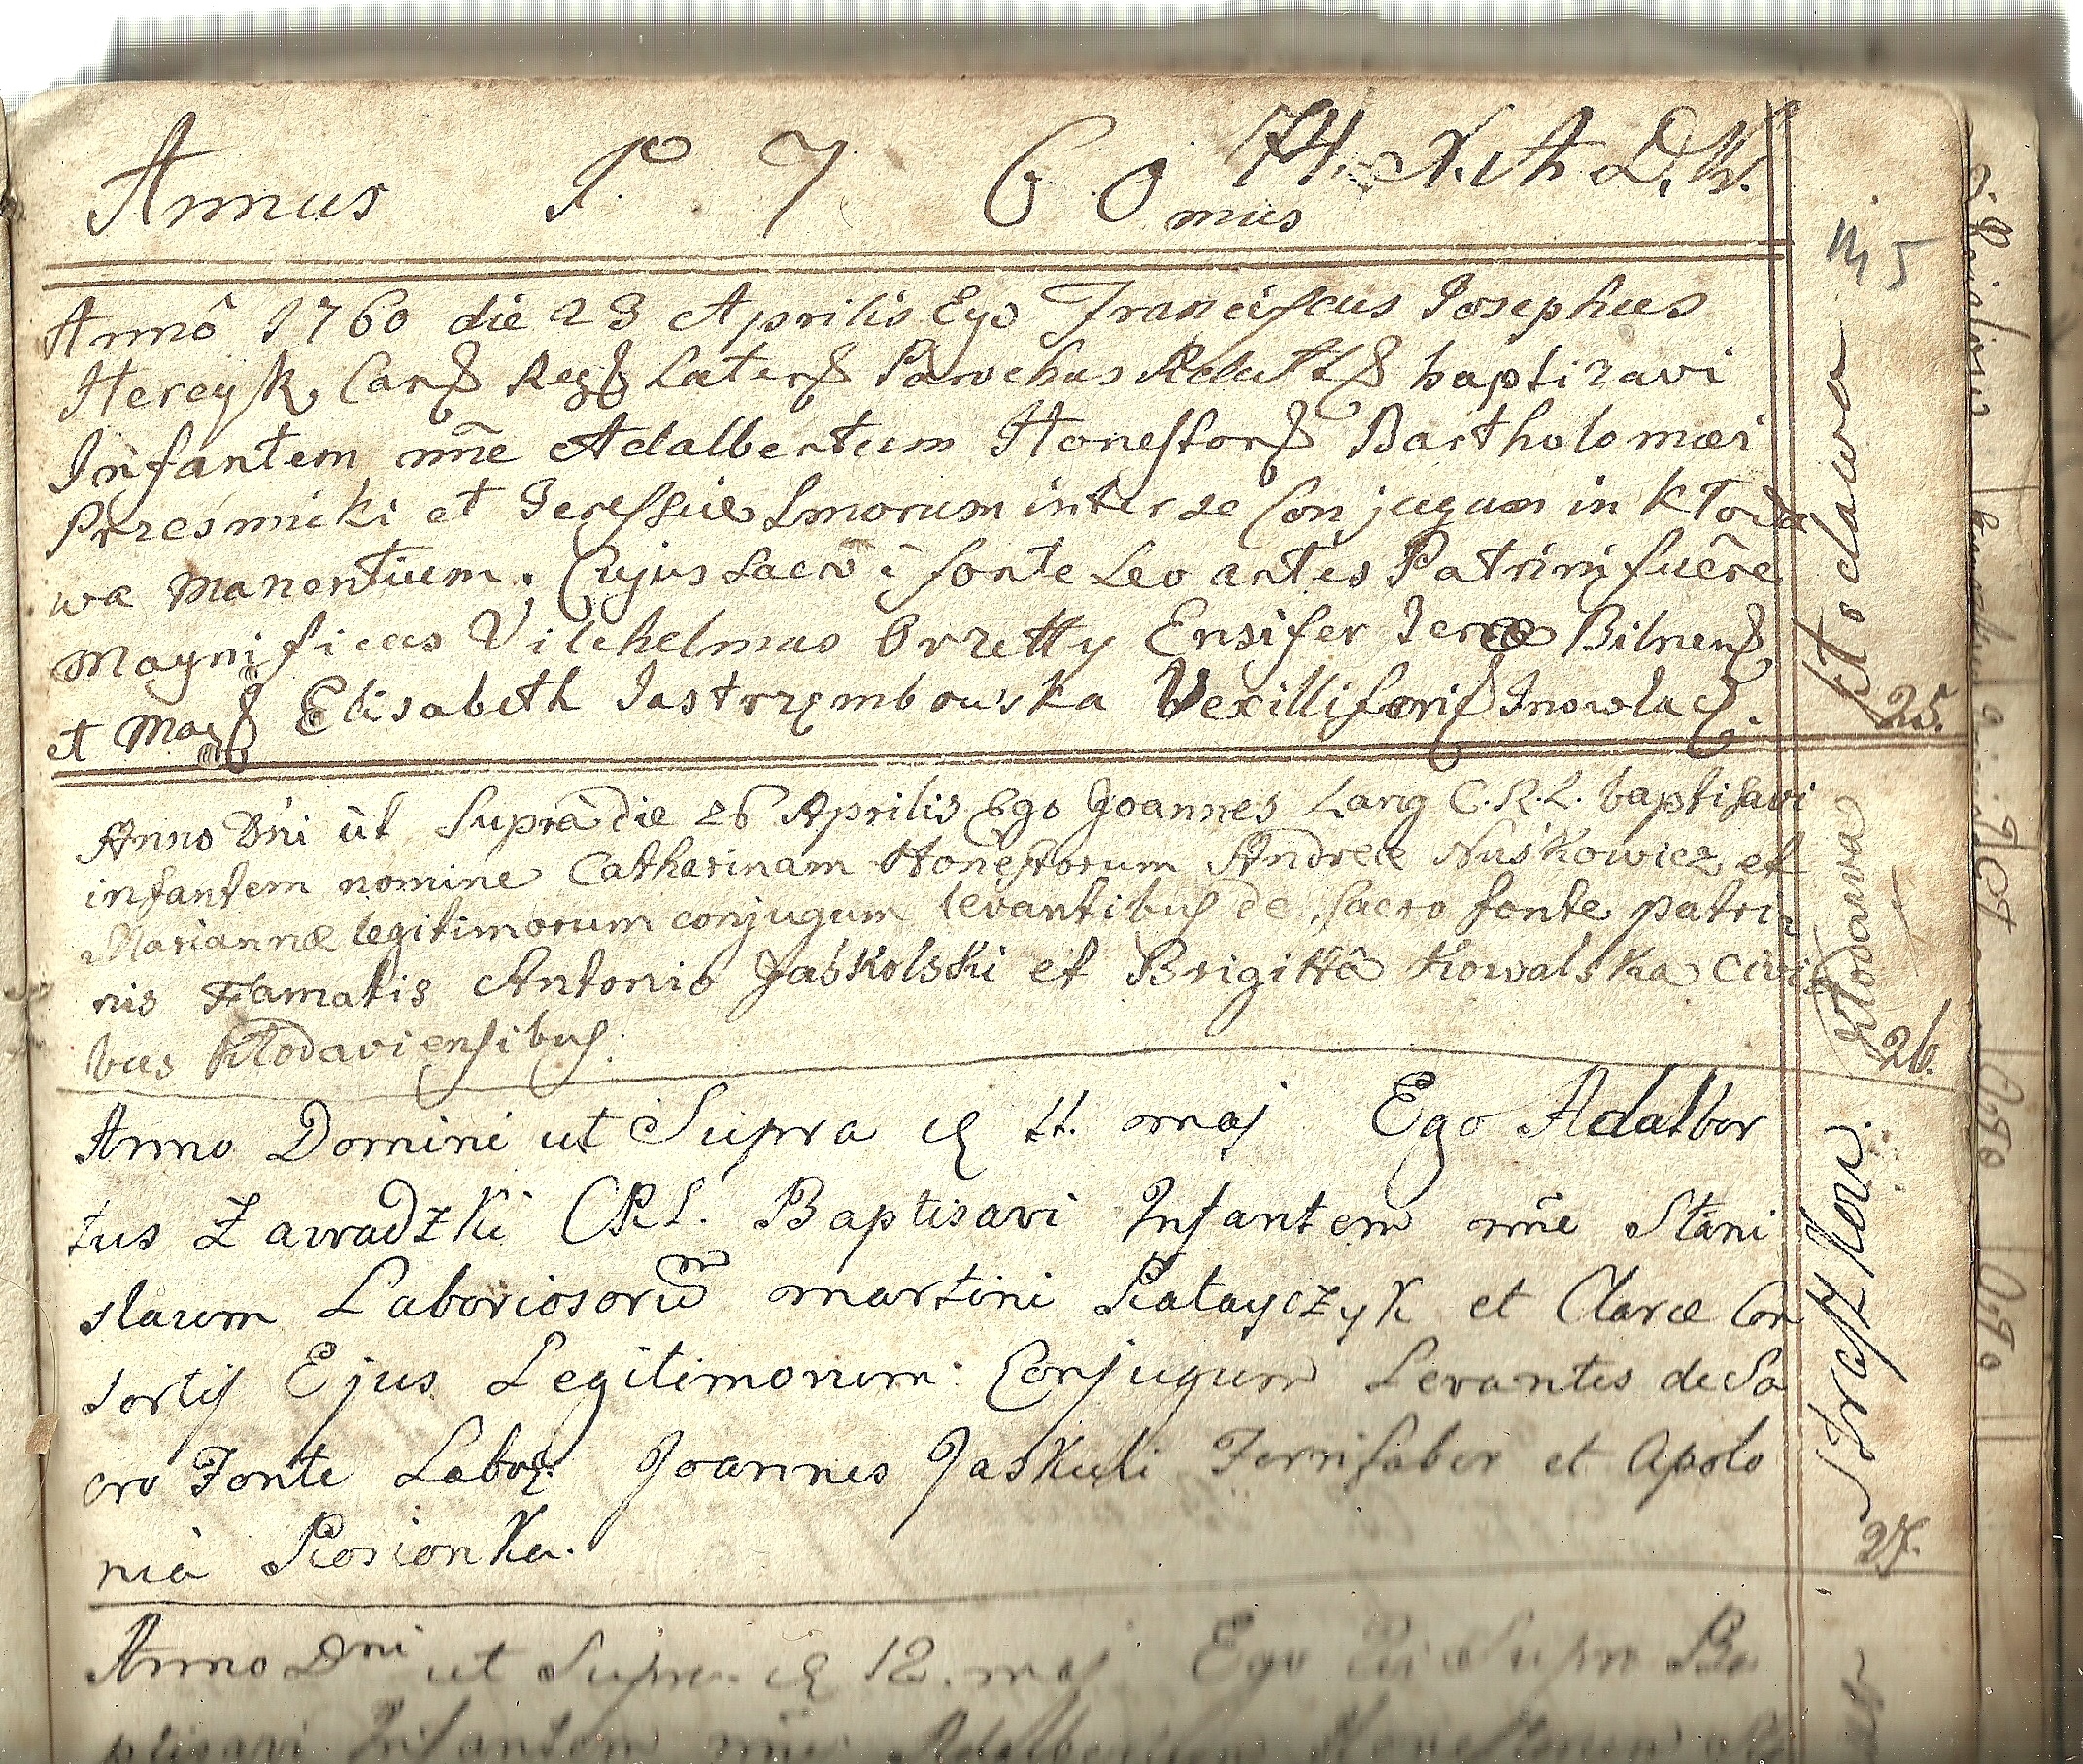 Annus 1. 7 6. 0 mus 74. N. A D. W.
Nr 5
Annô 1760 die 23 Aprilis Ego Franciscus Josephus
Hercyk Can Reg Later Parochus baptizavi
Infantem nm̄e Adalbertum Honestor Bartholomæi
Przesmicki et Teressiæ Lmorum inter se Conjugum in Kłoda
wa manentium. Cujus sacrô è fonte Levantes Patrini fuêre
Magnificus Vilchelmus Orzetty Ensifer Terræ Bilnens
et Mag Elisabeth Jastrzembowska Vexilliferis Inowlad.
Kłodawa
25.
Anno Dni ùt Suprà die 26 Aprilis Ego Joannes Lang C.R.L. baptisavi
infantem nomine Catharinam Honestorum Andreæ Nuśkowicz et
Mariannæ legitimorum conjugum levantibus de sacro fonte patri=
nis Famatis Antonio Jabkolski et Brigittâ Kowalska civi=
bus Kłodaviensibus.
Kłodawa
26.
Anno Domini ut Supra 11. maj Ego Adalber
tus Zawadzki CRL. Baptisavi Infantem nm̄e Stani
slaum Laboriosorum martini Ratayczyk et Claræ Con
sortis Ejus Legitimorum Conjugum Levantes de Sa
cro Fonte Labor: Joannes Jaskuli Ferrifaber et Apolo
nia Rosionka.
Straszkow
27.
Anno Dni ut Supra 12. maj Ego Supra Ba
ptisavi Infantem nm̄e Adalbertum